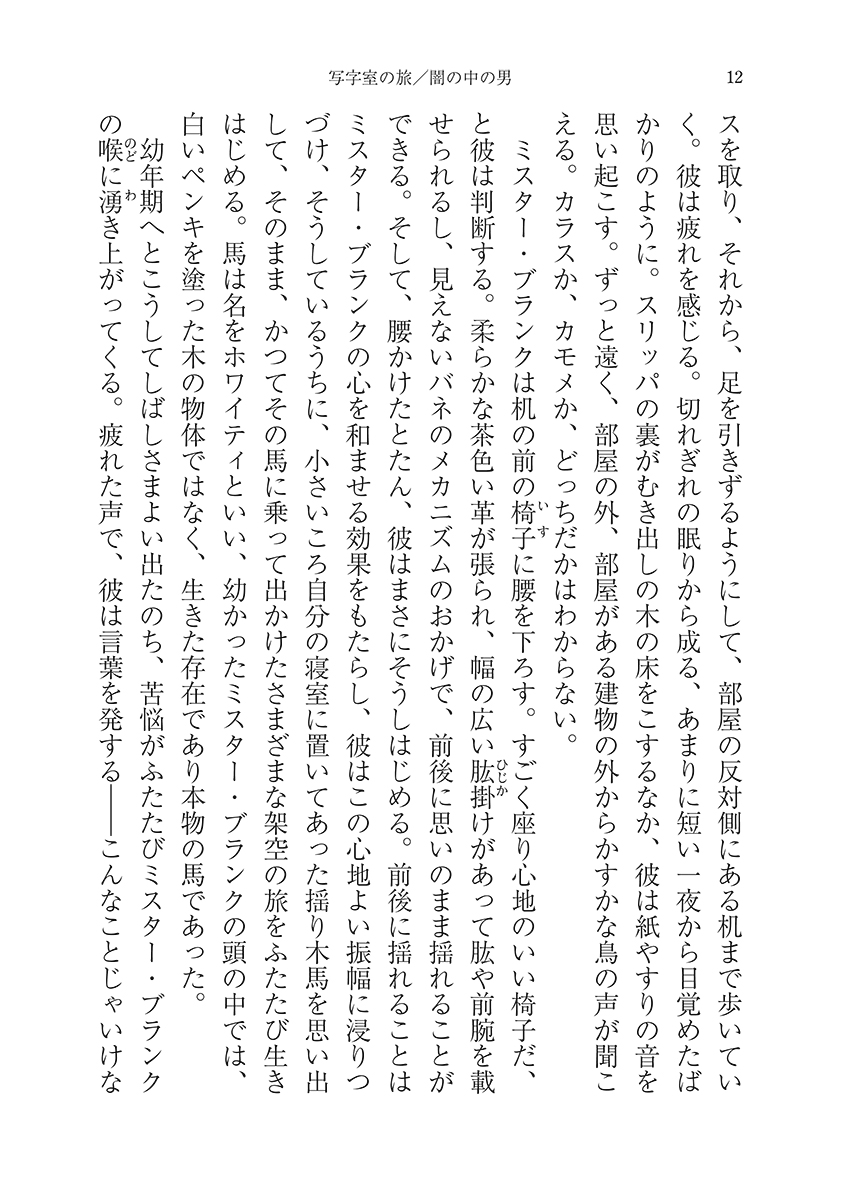 写字室の旅／闇の中の男
12
スを取り、それから、足を引きずるようにして、部屋の反対側にある机まで歩いてい
く。彼は疲れを感じる。切れぎれの眠りから成る、あまりに短い一夜から目覚めたば
かりのように。スリッパの裏がむき出しの木の床をこするなか、彼は紙やすりの音を
思い起こす。ずっと遠く、部屋の外、部屋がある建物の外からかすかな鳥の声が聞こ
える。カラスか、カモメか、どっちだかはわからない。
ミスター・ブランクは机の前の椅子に腰を下ろす。すごく座り心地のいい椅子だ、
いす
と彼は判断する。柔らかな茶色い革が張られ、幅の広い肱掛けがあって肱や前腕を載
ひじか
せられるし、見えないバネのメカニズムのおかげで、前後に思いのまま揺れることが
できる。そして、腰かけたとたん、彼はまさにそうしはじめる。前後に揺れることは
ミスター・ブランクの心を和ませる効果をもたらし、彼はこの心地よい振幅に浸りつ
づけ、そうしているうちに、小さいころ自分の寝室に置いてあった揺り木馬を思い出
して、そのまま、かつてその馬に乗って出かけたさまざまな架空の旅をふたたび生き
はじめる。馬は名をホワイティといい、幼かったミスター・ブランクの頭の中では、
白いペンキを塗った木の物体ではなく、生きた存在であり本物の馬であった。
幼年期へとこうしてしばしさまよい出たのち、苦悩がふたたびミスター・ブランク
の喉に湧き上がってくる。疲れた声で、彼は言葉を発する――こんなことじゃいけな
のど
わ